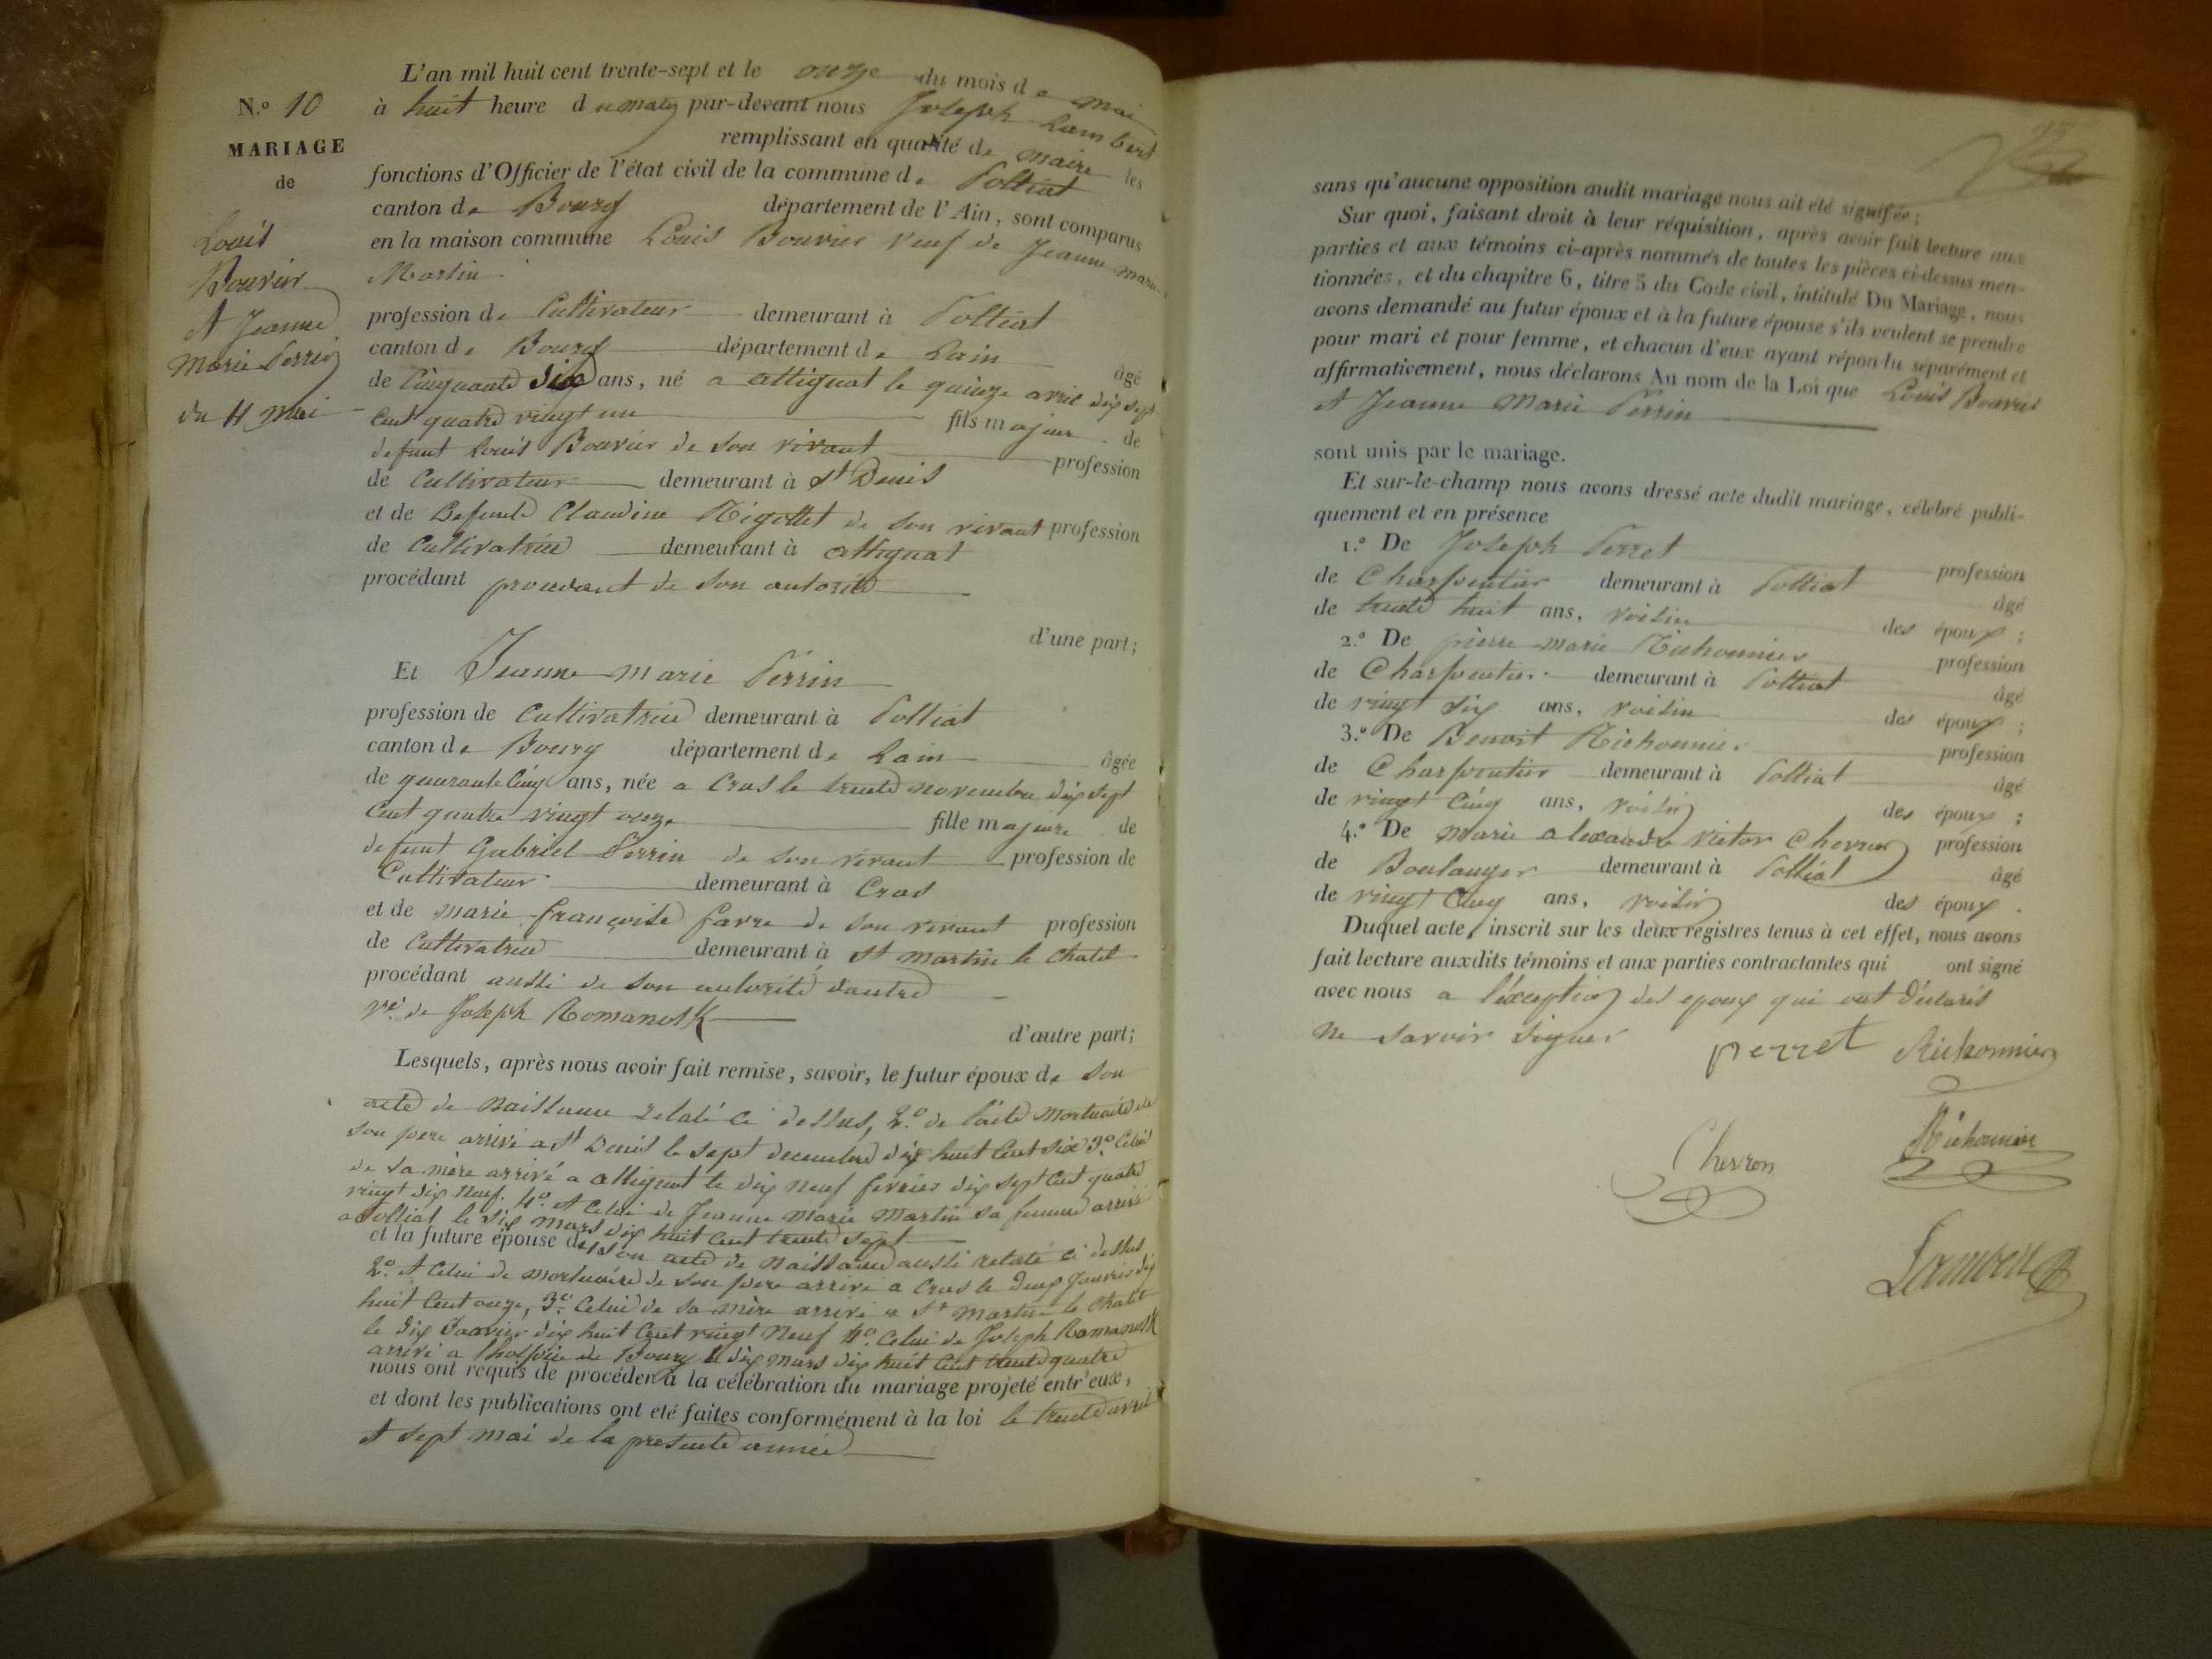 N.o 10
MARIAGE
de
Louis
Bouvier
et Jeanne
Marie Perrin
du 11 mai
L'an mil huit cent trente-sept et le onze du mois de mai
à huit heure du matin par-devant nous Joseph Lambert
remplissant en qualité de maire les
fonctions d'Officier de l'état civil de la commune de Polliat
canton de Bourg département de l'Ain, sont comparus
en la maison commune Louis Bouvier veuf de Jeanne marie
Martin
profession de Cultivateur demeurant à Polliat
canton de Bourg département de Lain âgé
de Cinquante Six ans, né a attignat le quinze avril dix sept
Cent quatre vingt un fils majeur de
defunt Louis Bouvier de son vivant profession
de Cultivateur demeurant à St Denis
et de Defunte Claudine Rigottet de son vivant profession
de Cultivatrice demeurant à attignat
procédant procedant de son autorité
d'une part;
Et Jeanne marie Perrin
profession de Cultivatrice demeurant à Polliat
canton de Bourg département de Lain âgée
de quarante Cinq ans, née a Cras le trente novembre dix sept
Cent quatre vingt onze fille majeure de
defunt Gabriel Perrin de son vivant profession de
Cultivateur demeurant à Cras
et de marie françoise favre de son vivant profession
de Cultivatrice demeurant à St martin le chatel
procédant aussi de son autorité dautre
ve de Joseph Romanosk
d'autre part;
Lesquels, après nous avoir fait remise, savoir, le futur époux de son
acte de Naissance relaté ci dessus, 2.o de l'acte mortuaire de
son pere arrivé a St Denis le sept decembre dix huit Cent six 3.o Celui
de sa mère arrivé a attignat le dix neuf fevrier dix sept Cent quatre
vingt dix neuf. 4.o et Celui de Jeanne Marie Martin sa femme arrivé
a Polliat le six mars dix huit Cent trente sept
et la future épouse de son acte de Naissance aussi relaté ci dessus
2.o et Celui de mortuaire de son pere arrivé a Cras le deux Janvier dix
huit Cent onze, 3.o Celui de sa mère arrivé a St Martin le Chatel
le dix Janvier dix huit Cent vingt neuf 4.o Celui de Joseph Romanosk
arrivé a lhospice de Bourg le dix mars dix huit Cent trente quatre
nous ont requis de procéder à la célébration du mariage projeté entr'eux,
et dont les publications ont été faites conformément à la loi le trente avril
et sept mai de la presente année
sans qu'aucune opposition audit mariage nous ait été signifiée;
Sur quoi, faisant droit à leur réquisition, après avoir fait lecture aux
parties et aux témoins ci-après nommés de toutes les pièces ci-dessus men-
tionnées, et du chapitre 6, titre 5 du Code civil, intitulé Du Mariage, nous
avons demandé au futur époux et à la future épouse s'ils veulent se prendre
pour mari et pour femme, et chacun d'eux ayant répondu séparément et
affirmativement, nous déclarons Au nom de la Loi que Louis Bouvier
et Jeanne Marie Perrin
sont unis par le mariage.
Et sur-le-champ nous avons dressé acte dudit mariage, célébré publi-
quement et en présence
1.o De Joseph Perret profession
de Charpentier demeurant à Polliat âgé
de trente huit ans, voisin des époux;
2.o De pierre marie Richonnier profession
de Charpentier demeurant à Polliat âgé
de vingt six ans, voisin des époux;
3.o De Benoit Richonnier profession
de Charpentier demeurant à Polliat âgé
de vingt Cinq ans, voisin des époux;
4.o De marie alexandre victor Cherron profession
de Boulanger demeurant à Polliat âgé
de vingt Cinq ans, voisin des époux.
Duquel acte, inscrit sur les deux registres tenus à cet effet, nous avons
fait lecture auxdits témoins et aux parties contractantes qui ont signé
avec nous a l'exception des epoux qui ont déclarés
ne savoir signer
perret Richonnier
Cherron Richonnier
Lambert